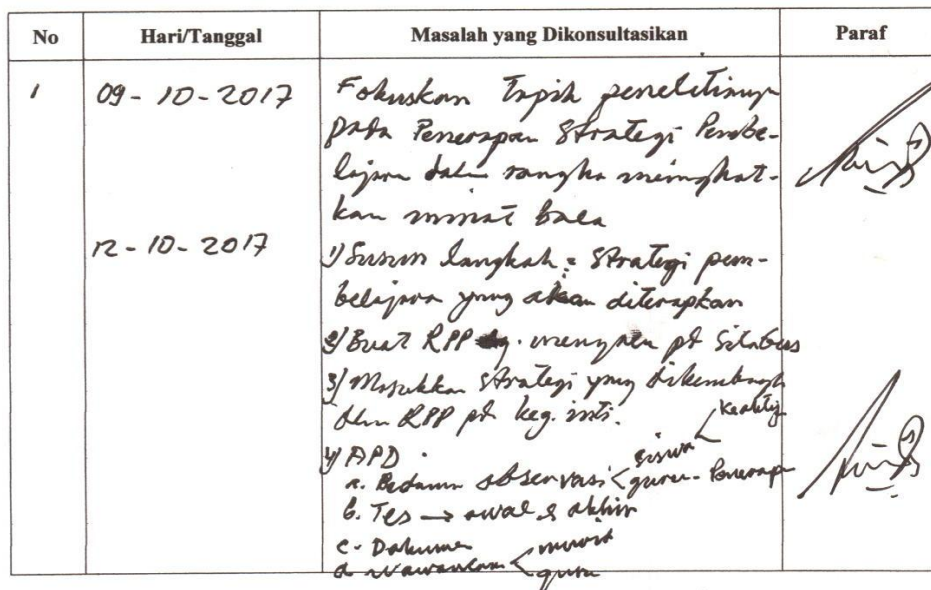 No Hari/Tanggal Masalah yang Dikonsultasikan Paraf
1 09-10-2017 Fokuskan Topik penelitiannya
pada Penerapan Strategi Pembe-
lajaran dalam rangka meningkat-
kan minat baca
12-10-2017 1) Susun langkah² Strategi pem-
belajaran yang akan diterapkan
2) Buat RPP dg. mengacu pd Silabus
3) Masukkan Strategi yang dikembangk
dlm RPP pd keg. inti.
4) APD siswa
a. Pedoman observasi guru - Penerapan
b. Tes → awal & akhir
c. Dokumen murid
d. Wawancara guru